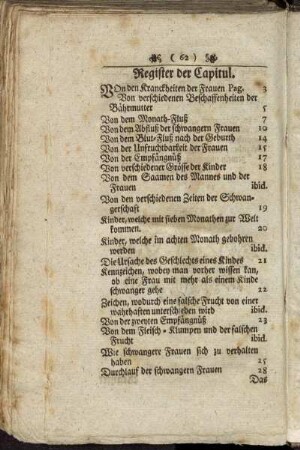 ( 62 )
Register der Capitul.
VOn den Kranckheiten der Frauen Pag. 3
Von verschiedenen Beschaffenheiten der
Bährmutter 5
Von dem Monath-Fluß 7
Von dem Abfluß der schwangern Frauen 10
Von dem Blut-Fluß nach der Geburth 14
Von der Unfruchtbarkeit der Frauen 15
Von der Empfängnüß 17
Von verschiedener Grösse der Kinder 18
Von dem Saamen des Mannes und der
Frauen ibid.
Von den verschiedenen Zeiten der Schwan-
gerschaft 19
Kinder, welche mit sieben Monathen zur Welt
kommen. 20
Kinder, welche im achten Monath gebohren
werden ibid.
Die Ursache des Geschlechts eines Kindes 21
Kennzeichen, wobey man vorher wissen kan,
ob eine Frau mit mehr als einem Kinde
schwanger gehe 22
Zeichen, wodurch eine falsche Frucht von einer
wahrhaften unterschieden wird ibid.
Von der zweyten Empfängnüß 23
Von dem Fleisch-Klumpen und der falschen
Frucht ibid.
Wie schwangere Frauen sich zu verhalten
haben 25
Durchlauf der schwangern Frauen 28
Das